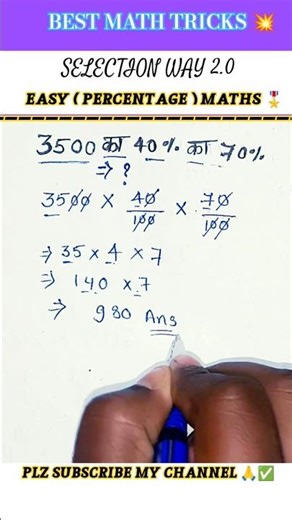 BEST MATH TRICKS 💥
SELECTION WAY 2.0
EASY ( PERCENTAGE ) MATHS 🎖️
3500 का 40% का 70%
⇒ ?
3500 × 40/100 × 70/100
⇒ 35 × 4 × 7
⇒ 140 × 7
⇒ 980 Ans
PLZ SUBSCRIBE MY CHANNEL 🙏✅